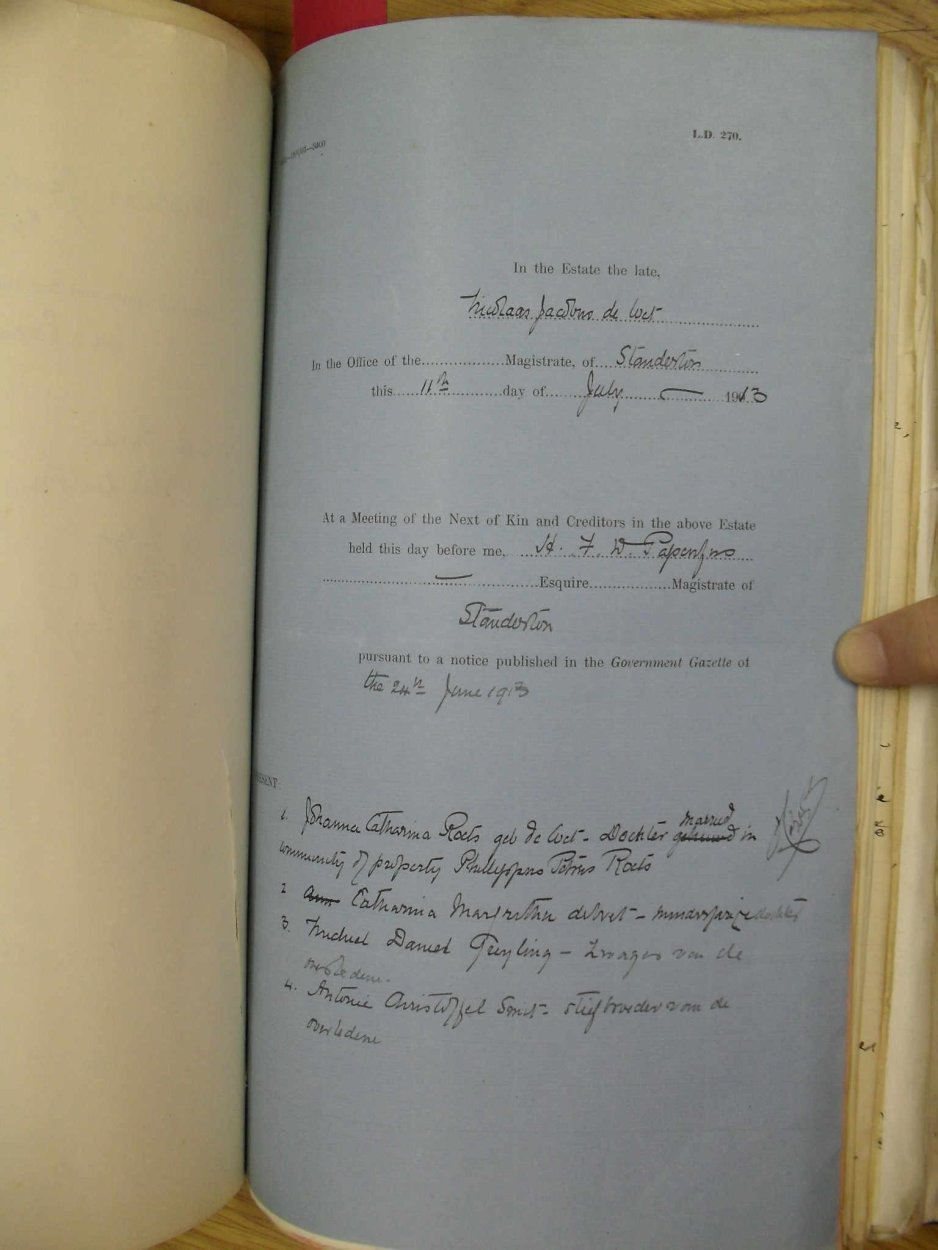 L.D. 270.
In the Estate the late,
Nicolaas Jacobus de Wet
In the Office of the................Magistrate, of Standerton
this 11th day of July 1913
At a Meeting of the Next of Kin and Creditors in the above Estate
held this day before me, H. F. W. Papenfus
Esquire..................Magistrate of
Standerton
pursuant to a notice published in the Government Gazette of
the 24th June 1913
1. Johanna Catharina Roets geb de Wet - Dochter married in
community of property Phillippus Petrus Roets
2 Catharina Margretha de Wet - minderjarige dochter
3. Michiel Daniel Greyling - Zwager van de
overledene.
4. Antonie Christoffel Smit - stiefbroeder van de
overledene